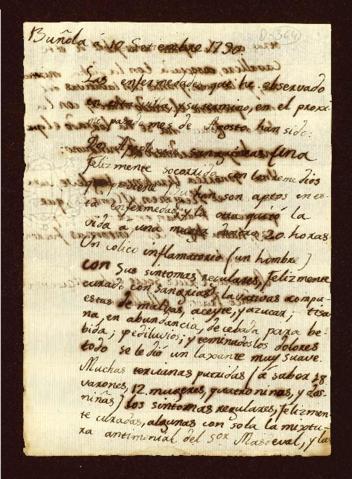 Buñola á 10 Setiembre 1790
Las enfermedades que he observado
en esta villa, y su termino, en el proxi
mo pasado mes de Agosto han sido:
Dos (una
felizmente socorrida con los remedios
son aptos en es
ta enfermedad, y la otra quitò la
vida a una muger dentro 20 horas
Un colico inflamatorio (un hombre)
con sus sintomas regulares, felizmente
curado con sangrias, lavativas compu
estas de malvas, aceyte, y azucar; tisa
na, en abundancia, de cebada para be
bida; pediluvios; y terminados los dolores
todo se le diò un laxante muy suave.
Muchas tercianas putridas (á saber 18
varones, 12 mugeres, quatro niños, y dos
niñas) los sintomas regulares, felizmen
te curadas, algunas con sola la mixtu
ra antimonial del Sor Masdeval, y las